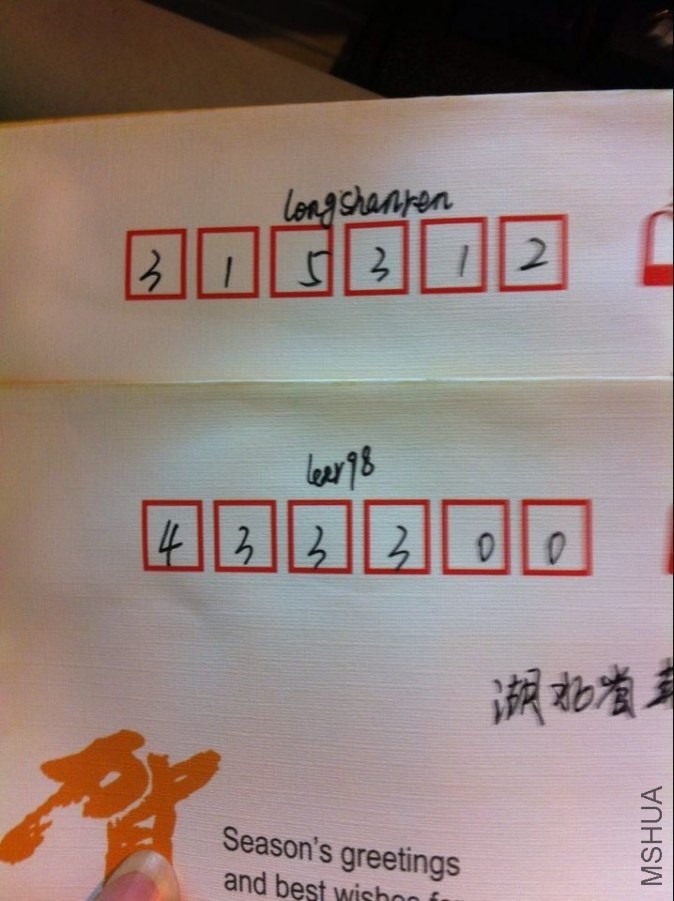 longshanren
3 1 5 3 1 2
leer98
4 3 3 3 0 0
湖北省
贺
Season's greetings
and best wishes for
MSHUA